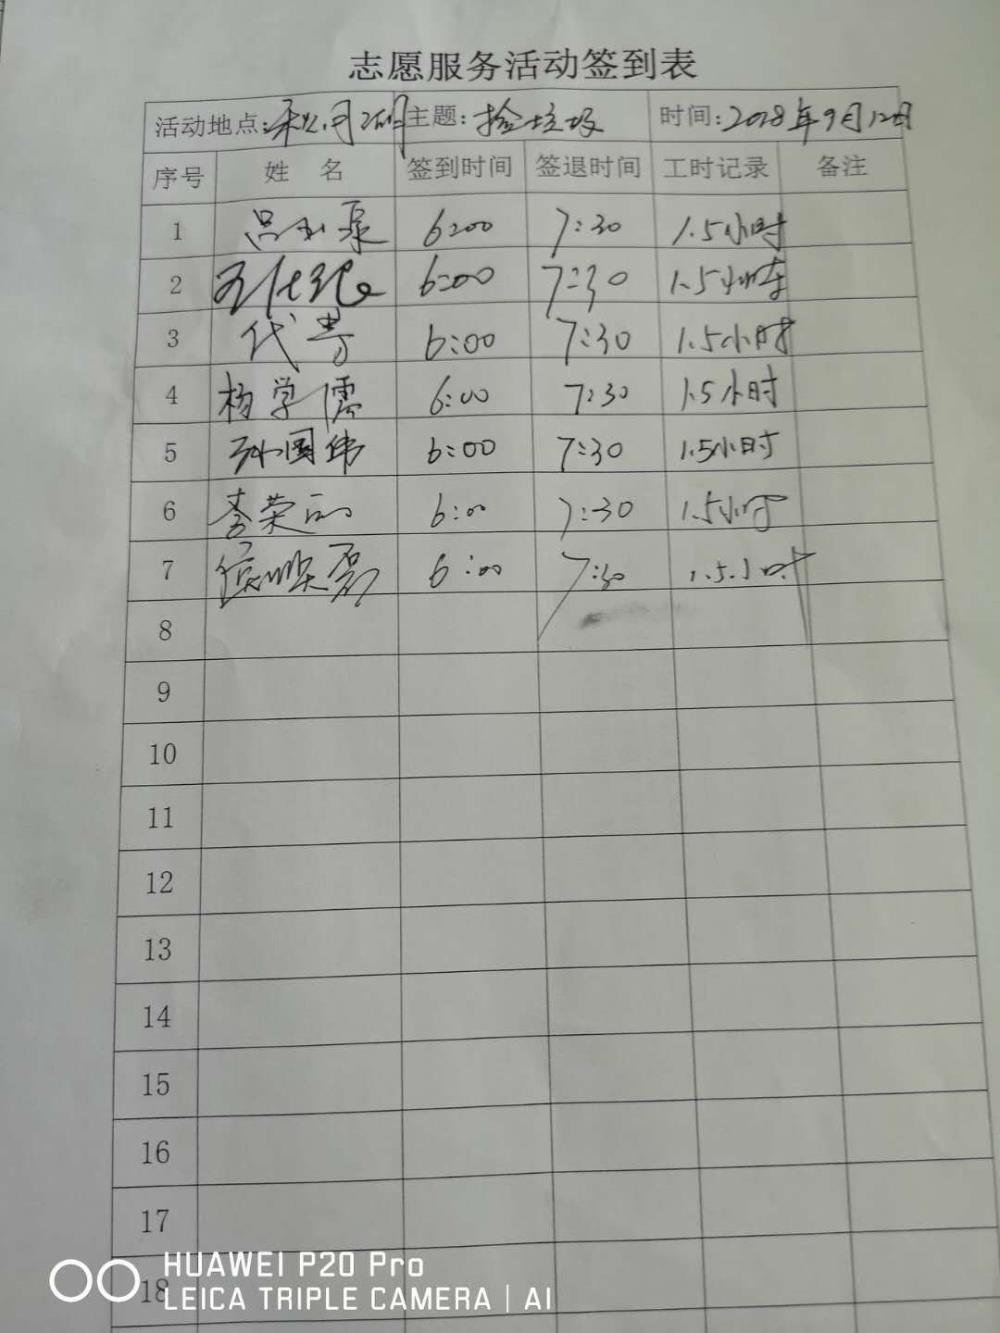 志愿服务活动签到表
活动地点: 主题:捡垃圾 时间:2018年9月12日
序号 姓 名 签到时间 签退时间 工时记录 备注
1 吕玉泉 6:00 7:30 1.5小时
2 6:00 7:30 1.5小时
3 代芳 6:00 7:30 1.5小时
4 杨学儒 6:00 7:30 1.5小时
5 孙国伟 6:00 7:30 1.5小时
6 李荣 6:00 7:30 1.5小时
7 6:00 7:30 1.5小时
8
9
10
11
12
13
14
15
16
17
18
HUAWEI P20 Pro
LEICA TRIPLE CAMERA | AI